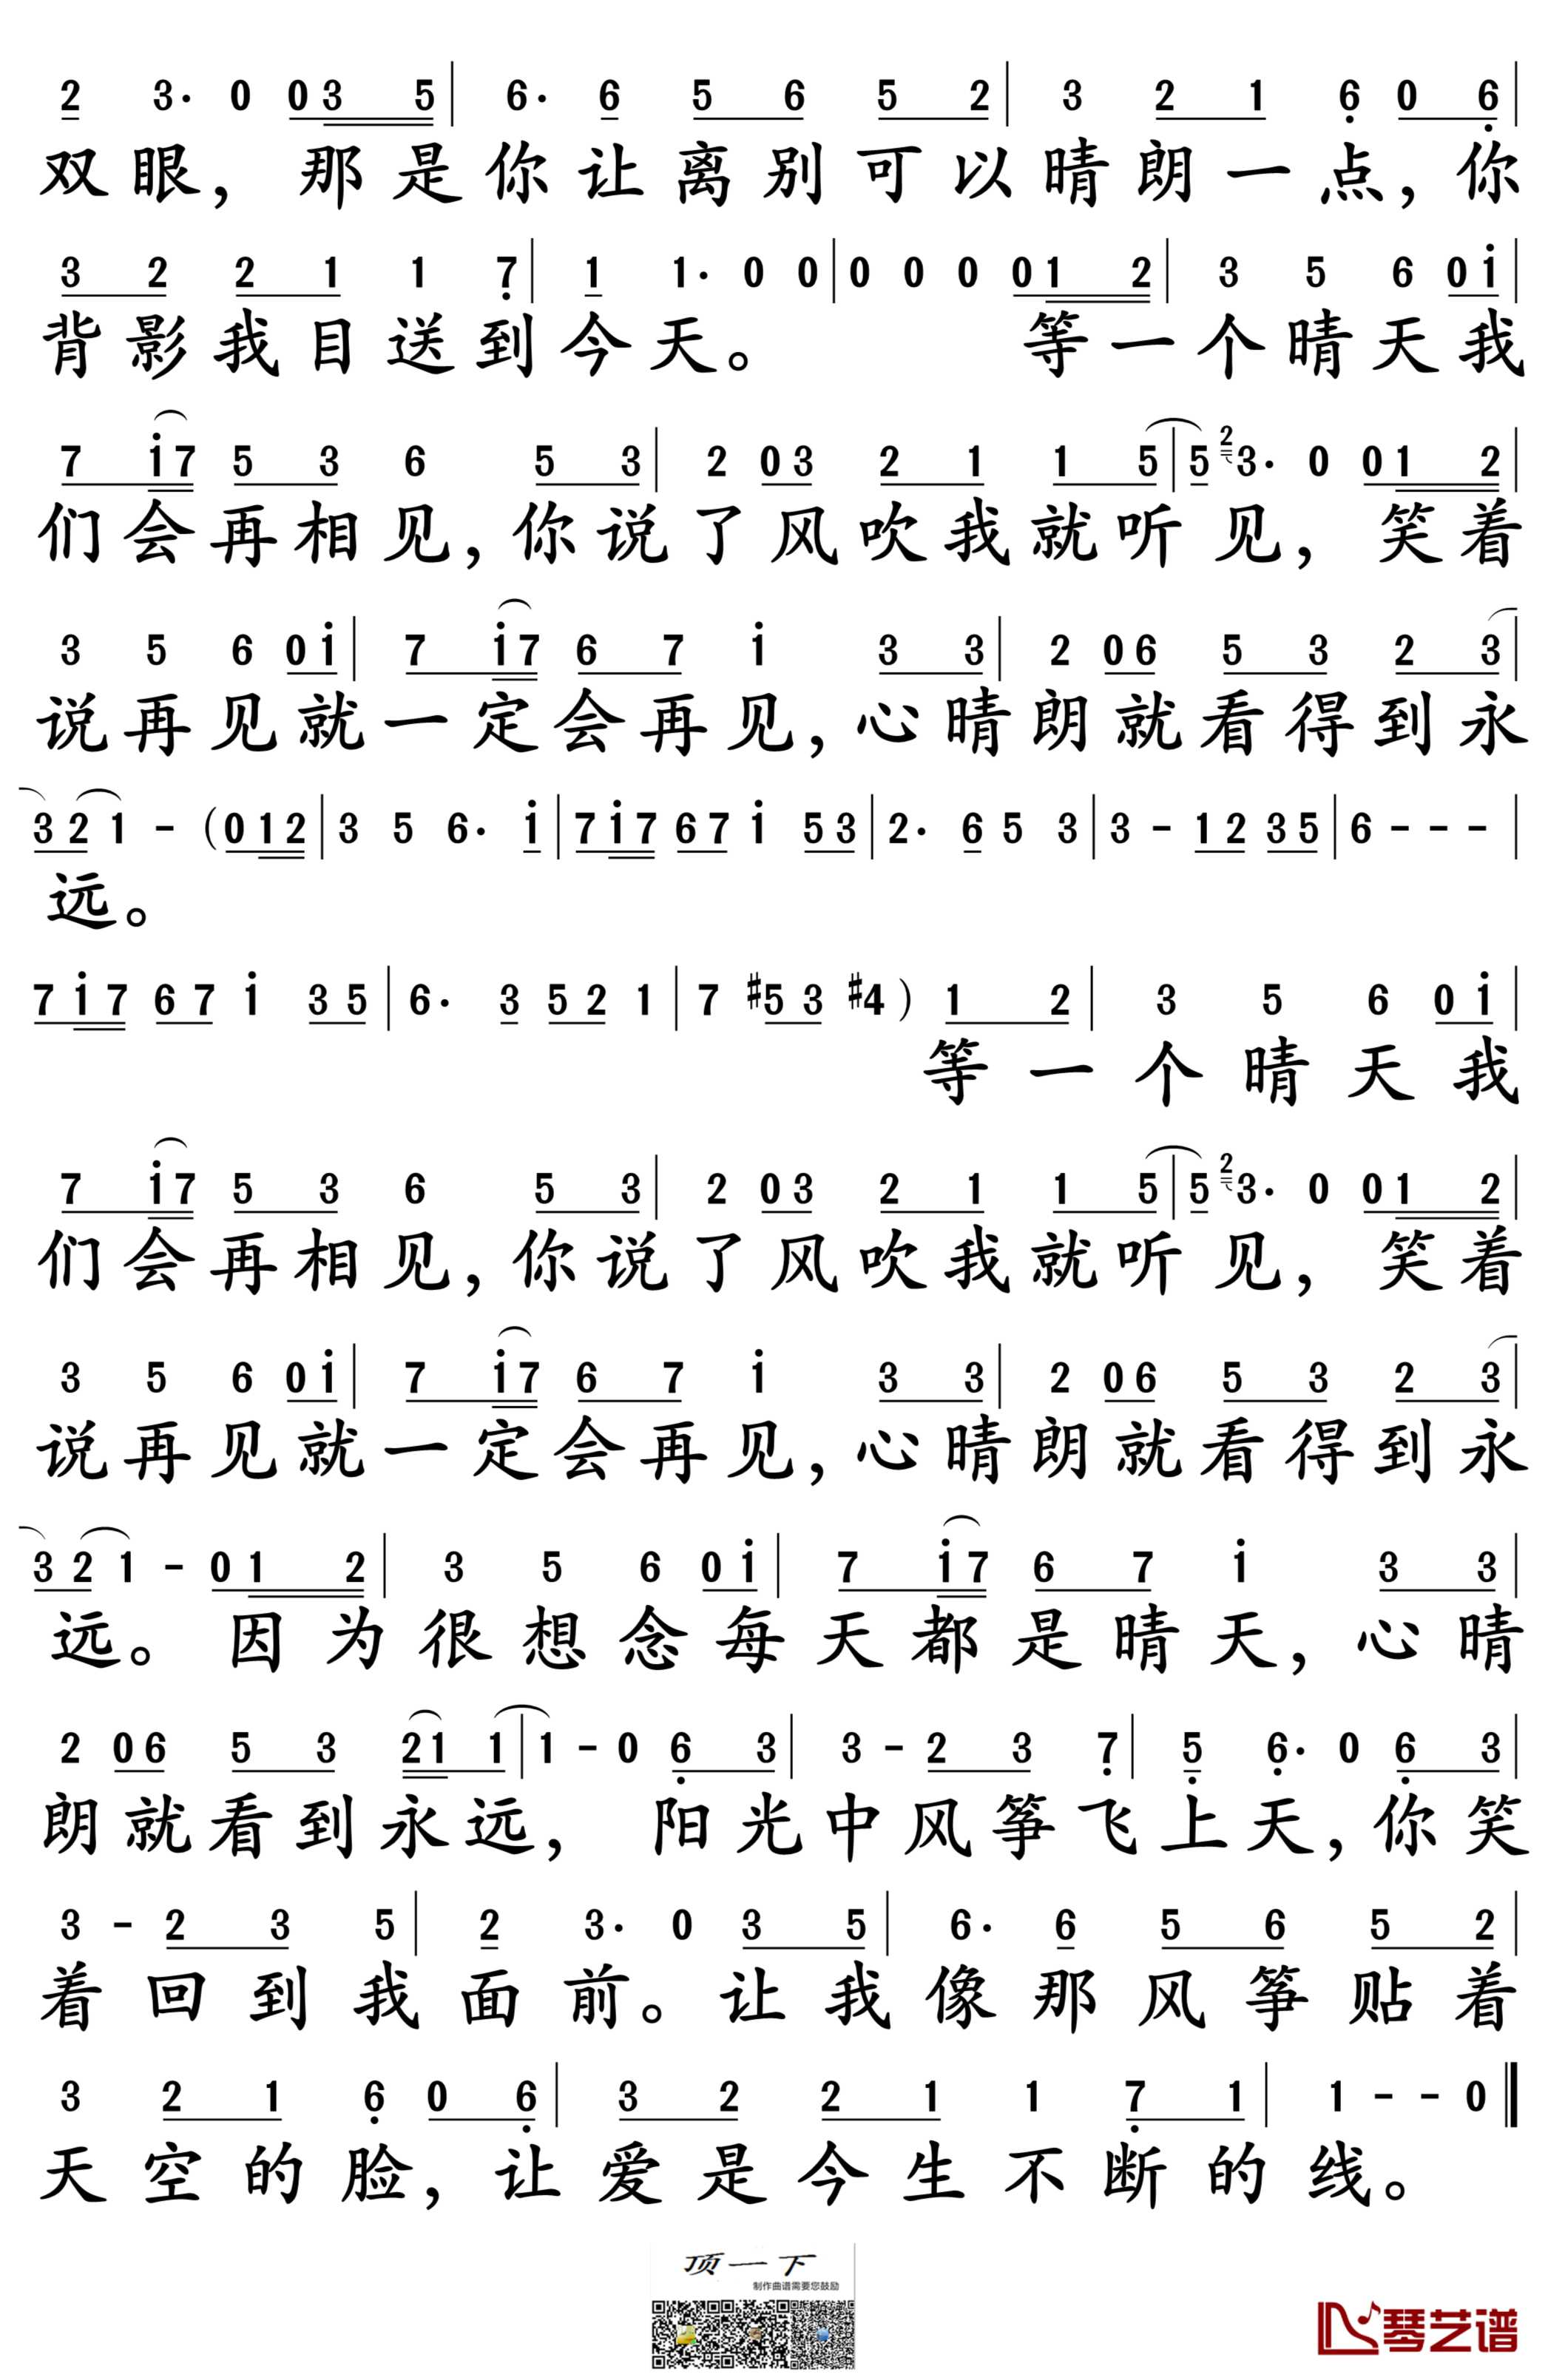 2 3· 0 0 3 5 | 6· 6 5 6 5 2 | 3 2 1 6̣ 0 6̣ |
双眼，那是你让离别可以晴朗一点，你
3 2 2 1 1 7̣ | 1 1· 0 0 | 0 0 0 0 1 2 | 3 5 6 0 i |
背影我目送到今天。 等一个晴天我
7 i 7 5 3 6 5 3 | 2 0 3 2 1 1 5 | 5 2 3· 0 0 1 2 |
们会再相见，你说了风吹我就听见，笑着
3 5 6 0 i | 7 i 7 6 7 i 3 3 | 2 0 6 5 3 2 3 |
说再见就一定会再见，心晴朗就看得到永
3 2 1 - （0 1 2 | 3 5 6· i | 7 i 7 6 7 i 5 3 | 2· 6 5 3 | 3 - 1 2 3 5 | 6 - - - |
远。
7 i 7 6 7 i 3 5 | 6· 3 5 2 1 | 7 #5 3 #4 ） 1 2 | 3 5 6 0 i |
等一个晴天我
7 i 7 5 3 6 5 3 | 2 0 3 2 1 1 5 | 5 2 3· 0 0 1 2 |
们会再相见，你说了风吹我就听见，笑着
3 5 6 0 i | 7 i 7 6 7 i 3 3 | 2 0 6 5 3 2 3 |
说再见就一定会再见，心晴朗就看得到永
3 2 1 - 0 1 2 | 3 5 6 0 i | 7 i 7 6 7 i 3 3 |
远。因为很想念每天都是晴天，心晴
2 0 6 5 3 2 1 1 | 1 - 0 6̣ 3 | 3 - 2 3 7̣ | 5̣ 6̣· 0 6̣ 3 |
朗就看到永远，阳光中风筝飞上天，你笑
3 - 2 3 5 | 2 3· 0 3 5 | 6· 6 5 6 5 2 |
着回到我面前。让我像那风筝贴着
3 2 1 6̣ 0 6̣ | 3 2 2 1 1 7̣ 1 | 1 - - 0 ‖
天空的脸，让爱是今生不断的线。
顶一下
制作曲谱需要您鼓励
琴艺谱